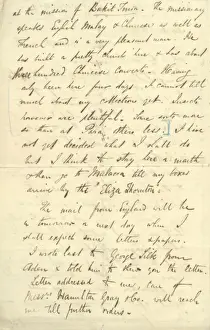 at the mission of Bukit Tima. The missionary
speaks English Malay & Chinese as well as
French and is a very pleasant man. He
has built a pretty church here & has about
three hundred Chinese converts. Having
only been here four days I cannot tell
much about my collections yet. Insects
however are plentiful. Some sorts more
so than at Para, others less. I have
not yet decided what I shall do
but I think to stay here a month
& then go to Malacca till my boxes
arrive by the "Eliza Thornton".
The mail from England will be
in tomorrow or next day when I
shall expect some letters & papers.
I wrote last to George Silk from
Aden & told him to shew you the letter.
Letters addressed to me, care of
Messrs. Hamilton Gray & Co. will reach
me till further orders.